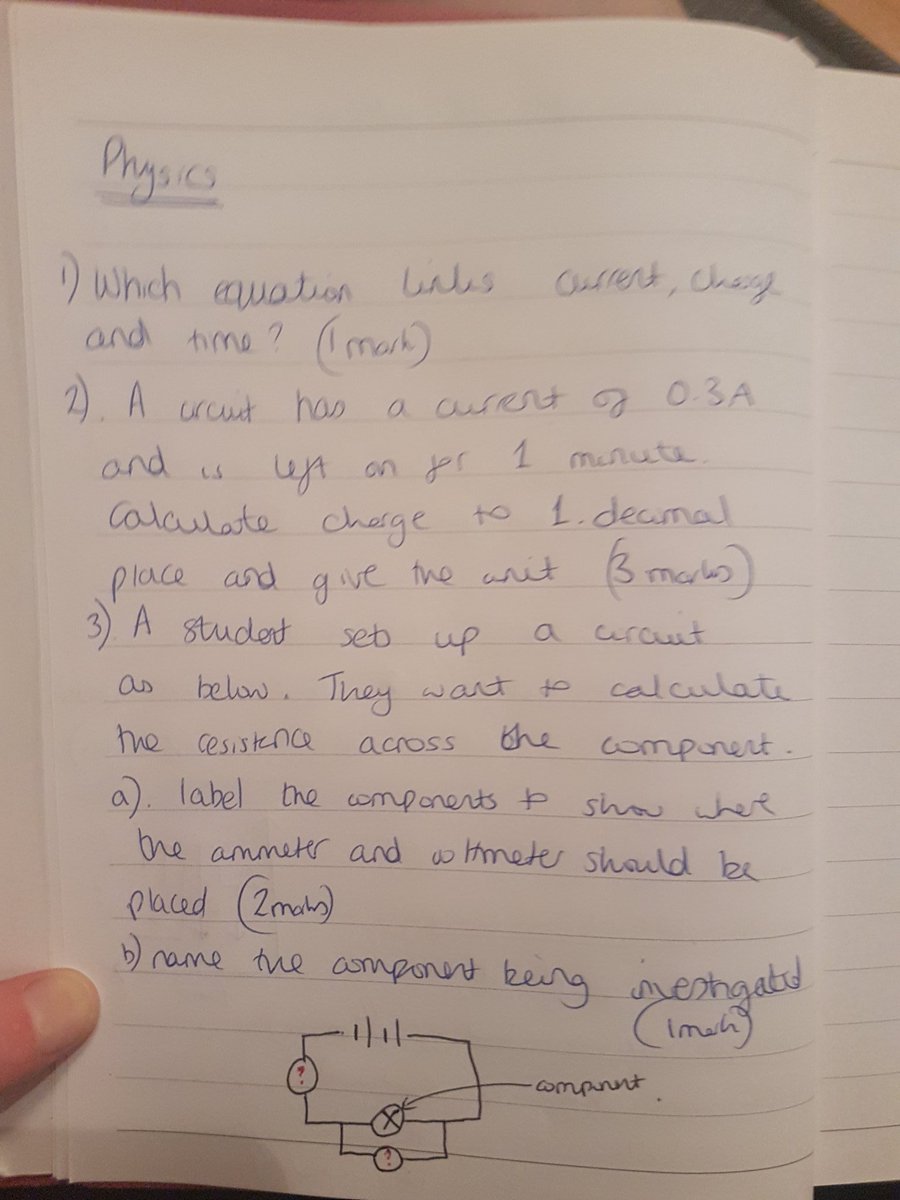 Physics
1) Which equation links current, charge
and time? (1 mark)
2). A circuit has a current of 0.3A
and is left on for 1 minute.
Calculate charge to 1. decimal
place and give the unit (3 marks)
3). A student sets up a circuit
as below. They want to calculate
the resistence across the component.
a). label the components to show where
the ammeter and voltmeter should be
placed (2 marks)
b) name the component being investigated
(1 mark)
?
component.
?